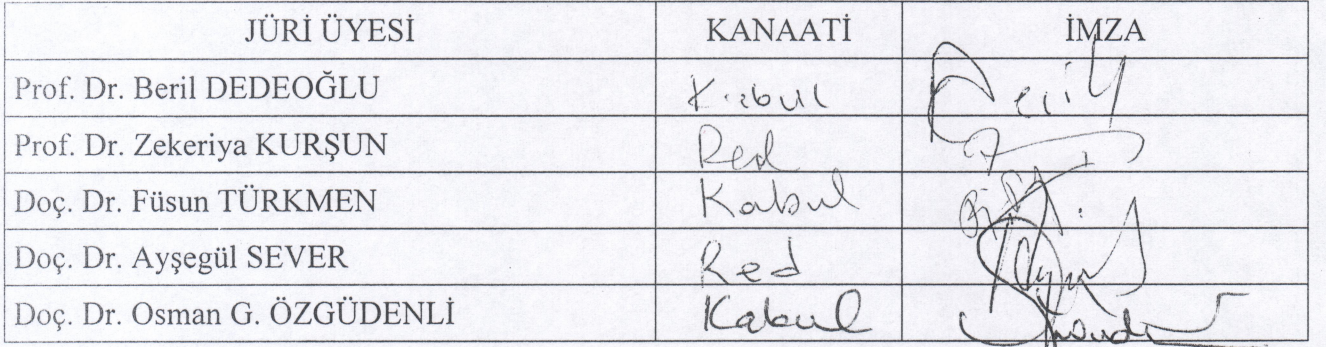 JÜRİ ÜYESİ KANAATİ İMZA
Prof. Dr. Beril DEDEOĞLU Kabul
Prof. Dr. Zekeriya KURŞUN Red
Doç. Dr. Füsun TÜRKMEN Kabul
Doç. Dr. Ayşegül SEVER Red
Doç. Dr. Osman G. ÖZGÜDENLİ Kabul